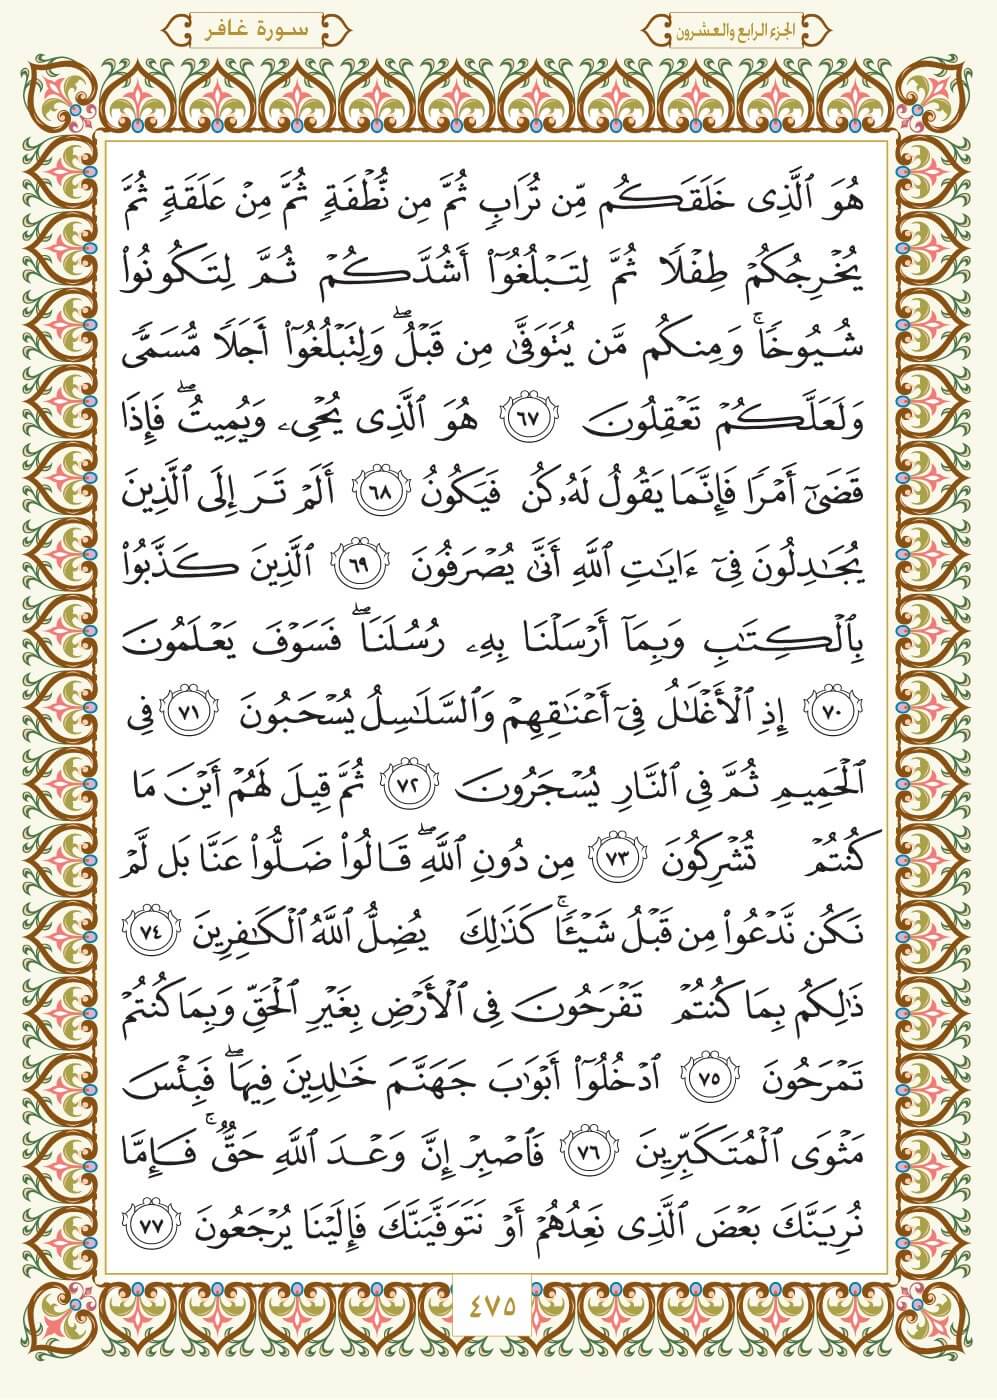 الجزء الرابع والعشرون
سورة غافر
هُوَ ٱلَّذِى خَلَقَكُم مِّن تُرَابٍ ثُمَّ مِن نُّطْفَةٍ ثُمَّ مِنْ عَلَقَةٍ ثُمَّ
يُخْرِجُكُمْ طِفْلًا ثُمَّ لِتَبْلُغُوٓا۟ أَشُدَّكُمْ ثُمَّ لِتَكُونُوا۟
شُيُوخًا ۚ وَمِنكُم مَّن يُتَوَفَّىٰ مِن قَبْلُ ۖ وَلِتَبْلُغُوٓا۟ أَجَلًا مُّسَمًّى
وَلَعَلَّكُمْ تَعْقِلُونَ ٦٧ هُوَ ٱلَّذِى يُحْىِۦ وَيُمِيتُ ۖ فَإِذَا
قَضَىٰٓ أَمْرًا فَإِنَّمَا يَقُولُ لَهُۥ كُن فَيَكُونُ ٦٨ أَلَمْ تَرَ إِلَى ٱلَّذِينَ
يُجَـٰدِلُونَ فِىٓ ءَايَـٰتِ ٱللَّهِ أَنَّىٰ يُصْرَفُونَ ٦٩ ٱلَّذِينَ كَذَّبُوا۟
بِٱلْكِتَـٰبِ وَبِمَآ أَرْسَلْنَا بِهِۦ رُسُلَنَا ۖ فَسَوْفَ يَعْلَمُونَ
٧٠ إِذِ ٱلْأَغْلَـٰلُ فِىٓ أَعْنَـٰقِهِمْ وَٱلسَّلَـٰسِلُ يُسْحَبُونَ ٧١ فِى
ٱلْحَمِيمِ ثُمَّ فِى ٱلنَّارِ يُسْجَرُونَ ٧٢ ثُمَّ قِيلَ لَهُمْ أَيْنَ مَا
كُنتُمْ تُشْرِكُونَ ٧٣ مِن دُونِ ٱللَّهِ ۖ قَالُوا۟ ضَلُّوا۟ عَنَّا بَل لَّمْ
نَكُن نَّدْعُوا۟ مِن قَبْلُ شَيْـًٔا ۚ كَذَٰلِكَ يُضِلُّ ٱللَّهُ ٱلْكَـٰفِرِينَ ٧٤
ذَٰلِكُم بِمَا كُنتُمْ تَفْرَحُونَ فِى ٱلْأَرْضِ بِغَيْرِ ٱلْحَقِّ وَبِمَا كُنتُمْ
تَمْرَحُونَ ٧٥ ٱدْخُلُوٓا۟ أَبْوَٰبَ جَهَنَّمَ خَـٰلِدِينَ فِيهَا ۖ فَبِئْسَ
مَثْوَى ٱلْمُتَكَبِّرِينَ ٧٦ فَٱصْبِرْ إِنَّ وَعْدَ ٱللَّهِ حَقٌّ ۚ فَإِمَّا
نُرِيَنَّكَ بَعْضَ ٱلَّذِى نَعِدُهُمْ أَوْ نَتَوَفَّيَنَّكَ فَإِلَيْنَا يُرْجَعُونَ ٧٧
٤٧٥